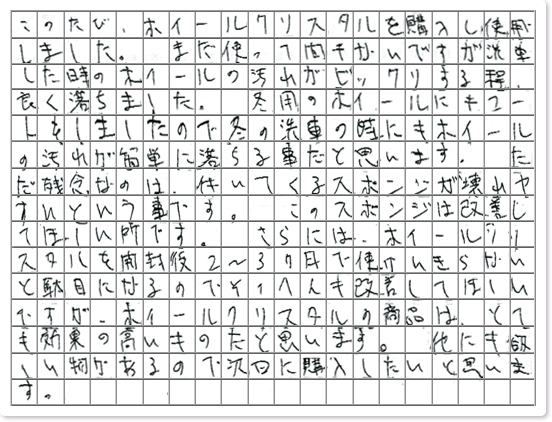 このたび、ホイールクリスタルを購入し使用
しました。 まだ使って間もないですが洗車
した時のホイールの汚れがビックリする程、
良く落ちました。 冬用のホイールにもコー
トをしましたので冬の洗車の時にもホイール
の汚れが簡単に落ちる事だと思います。 た
だ残念なのは、付いてくるスポンジが壊れや
すいという事です。 このスポンジは改善し
てほしい所です。 さらには、ホイールクリ
スタルを開封後2〜3ヶ月で使いきらない
と駄目になるのでそのへんも改善してほしい
ですが、ホイールクリスタルの商品は、とて
も効果の高いものだと思います。 他にも欲
しい物があるので次回に購入したいと思いま
す。